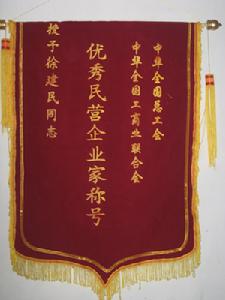 授予徐建民同志
优秀民营企业家称号
中华全国工商业联合会
中华全国总工会